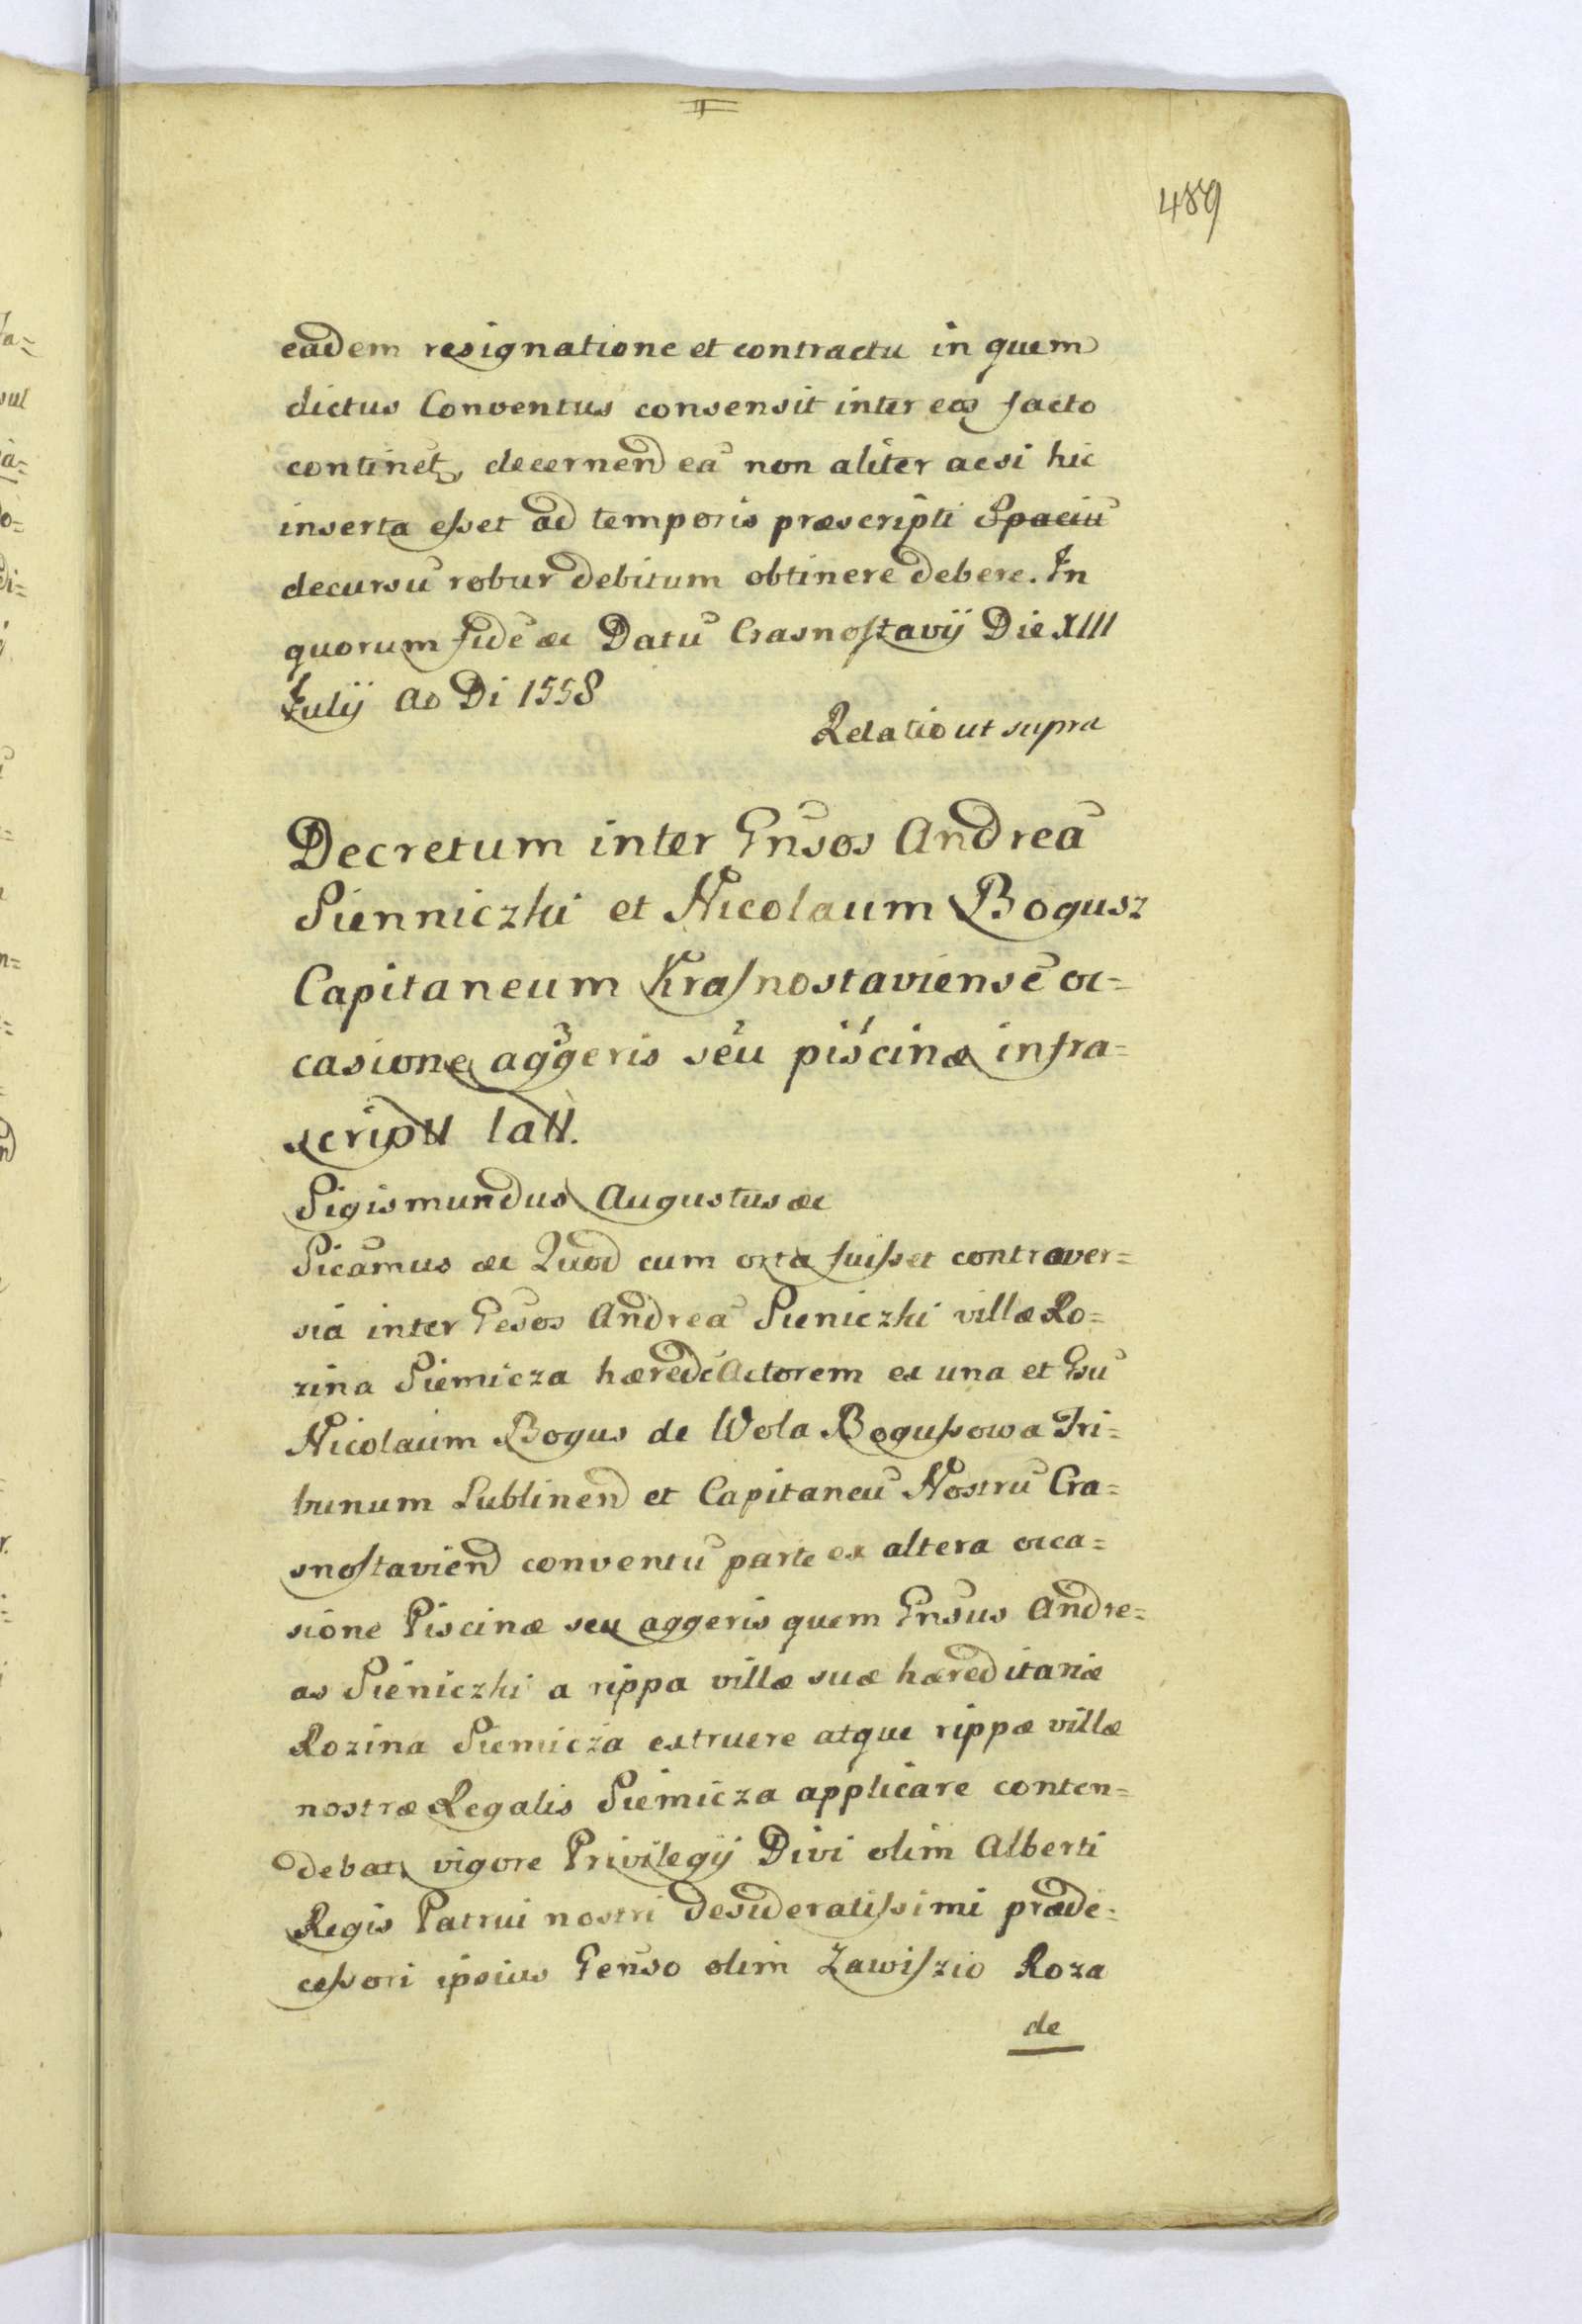 489
eadem resignatione et contractu in quem
dictus Conventus consensit inter eos facto
continet, decernend ea non aliter acsi hic
inserta esset ad temporis præscripti Spaciū
decursū robur debitum obtinere debere. In
quorum fidē &c Datū Crasnostavij Die XIII
Julij Ao Di 1558
Relatio ut supra
Decretum inter Gnsos Andreā
Sienniczki et Nicolaum Bogusz
Capitaneum Krasnostaviensē oc=
casione aggeris seu piscinæ infra=
script latt.
Sigismundus Augustus &c
Sicamus &c Quod cum orta fuisset controver=
sia inter Gesos Andreā Sieniczki villæ Ro=
zina Siemicza hæredē Actorem ex una et Gsū
Nicolaum Bogus de Wola Bogussowa Tri=
bunum Lublinend et Capitaneū Nostrū Cra=
snostaviend conventū parte ex altera occa=
sione Piscinæ seu aggeris quem Gnsus Andre=
as Sieniczki a rippa villæ suæ hæreditariæ
Rozina Siemicza extruere atque rippæ villæ
nostræ Regalis Siemicza applicare conten=
debat, vigore Privilegij Divi olim Alberti
Regis Patrui nostri desideratissimi præde=
cessori ipsius Genso olim Zawiszio Roza
de